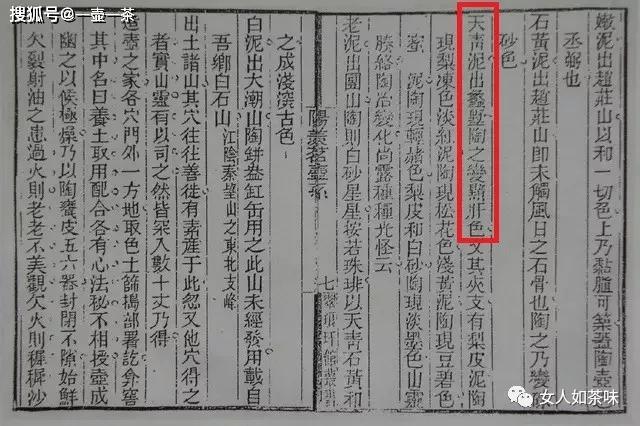 搜狐号@一壶一茶
嫩泥出趙莊山以和一切色上乃黏脂可築蓋陶壺之
丞弼也
石黃泥出趙莊山即未觸風日之石骨也陶之乃變硃
砂色
天青泥出蠡墅陶之變肝色又其夾支有梨皮泥陶
現梨凍色淡紅泥陶現松花色淺黃泥陶現豆碧色
蜜泥陶現輕赭色梨皮和白砂陶現淡墨色山靈
腠絡陶冶變化尚露種種光怪云
老泥出團山陶則白砂星星按若珠琲以天青石黃和
陽羨茗壺系
七 翠琅玕館叢書
之成淺深古色
白泥出大潮山陶缾盎缸缶用之此山未經發用載自
吾鄉白石山 江陰秦望山之東北支峰
出土諸山其穴往往善徙有素產于此忽又他穴得之
者實山靈有以司之然皆深入數十丈乃得
造壺之家各穴門外一方地取色土篩搗部署訖弇窖
其中名曰養土取用配合各有心法秘不相授壺成
幽之以候極燥乃以陶甕皮五六器封閉不隙始鮮
欠裂射油之患過火則老老不美觀欠火則稚稚沙
女人如茶味